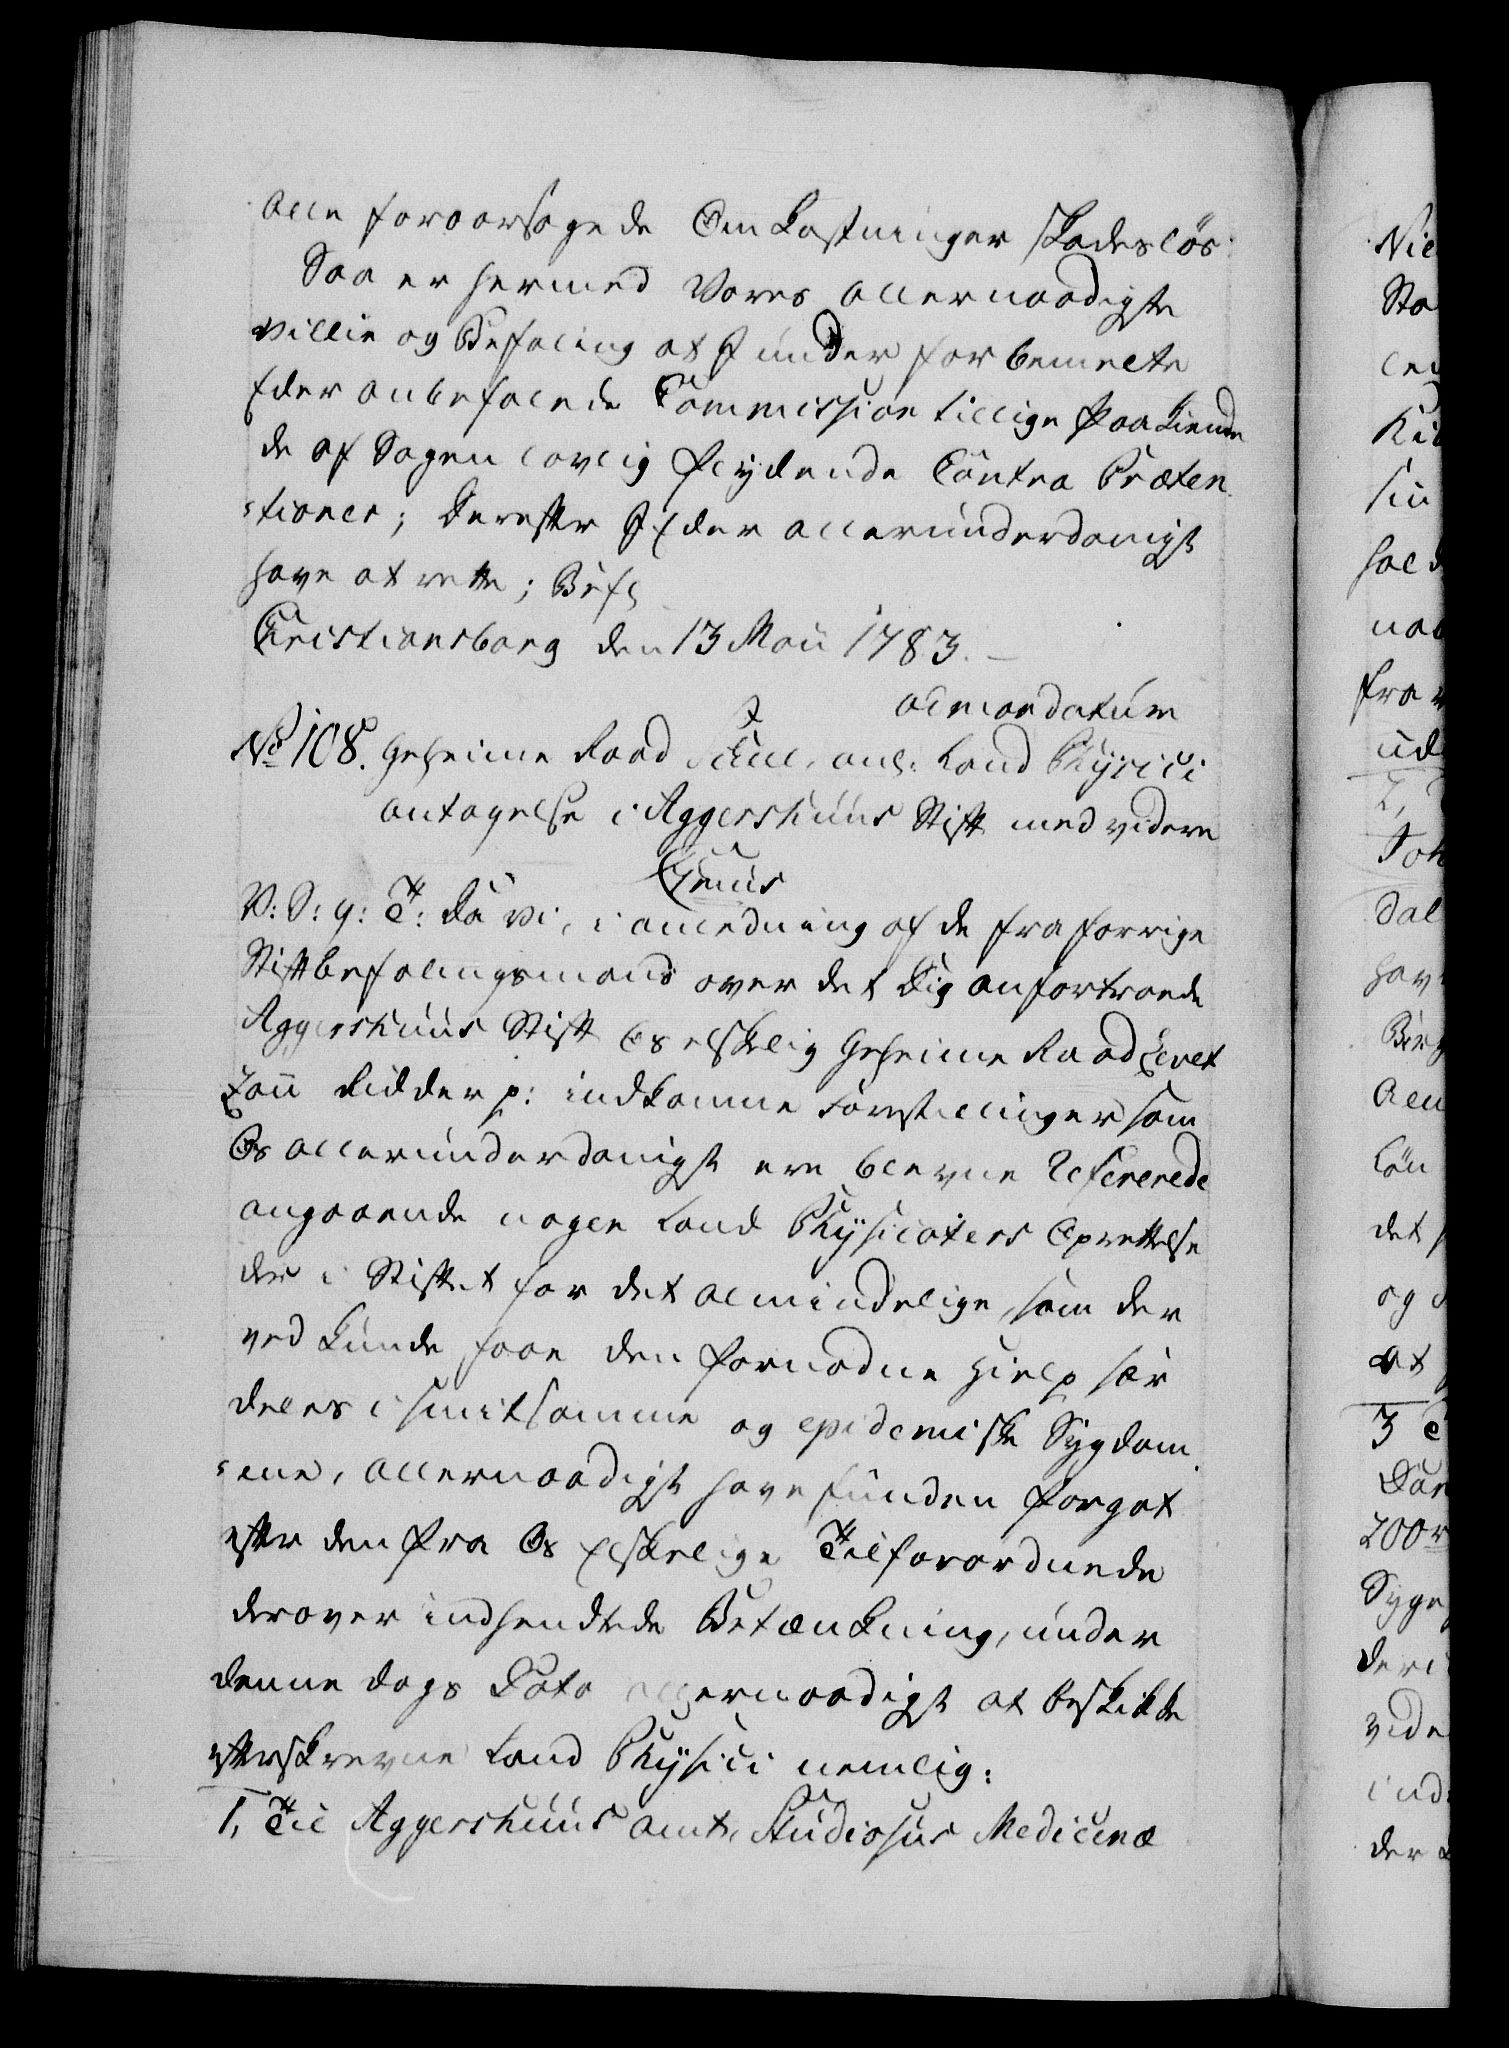 alle foraarsagede Omkostninger skadesløs
Saa er hermed Vores allernaadigste
Villie og Befaling at I under forbemelte
Eder anbefalede Commission tillige paakiende
de af Sagen lovlig flydende Contra Præten
-tioner; Derefter I Eder allerunderdanigst
have at rette; Befl
Christiansborg den 13 Maii 1783.
ad mandatum
No 108. Geheime Raad Juel, anl. Land Physici
antagelse i Aggershuus Stift med videre
V: S: G: T: Da Vi, i anledning af de fra forrige
Stiftbefalingsmand over det Dig anfortroede
Aggershuus Stift Os elskelig Geheime Raad Levet
zau Ridder p: indkomne Forestillinger som
Os allerunderdanigst ere blevne Refererede
angaaende nogle Land Physicaters Oprettelse
der i Stiftet for det almindelige, som der
ved kunde faae den fornødne Hielp sær
deles i smitsomme og epidemiske Sygdom
-me, allernaadigst have funden forgot
efter den fra Os Elskelige Tilforordnede
derover indsendte Betænkning, under
denne Dags Dato allernaadigst at beskikke
efterskrevne Land Physici nemlig:
1, Til Aggershuus Amt, Studiosus Medicinæ